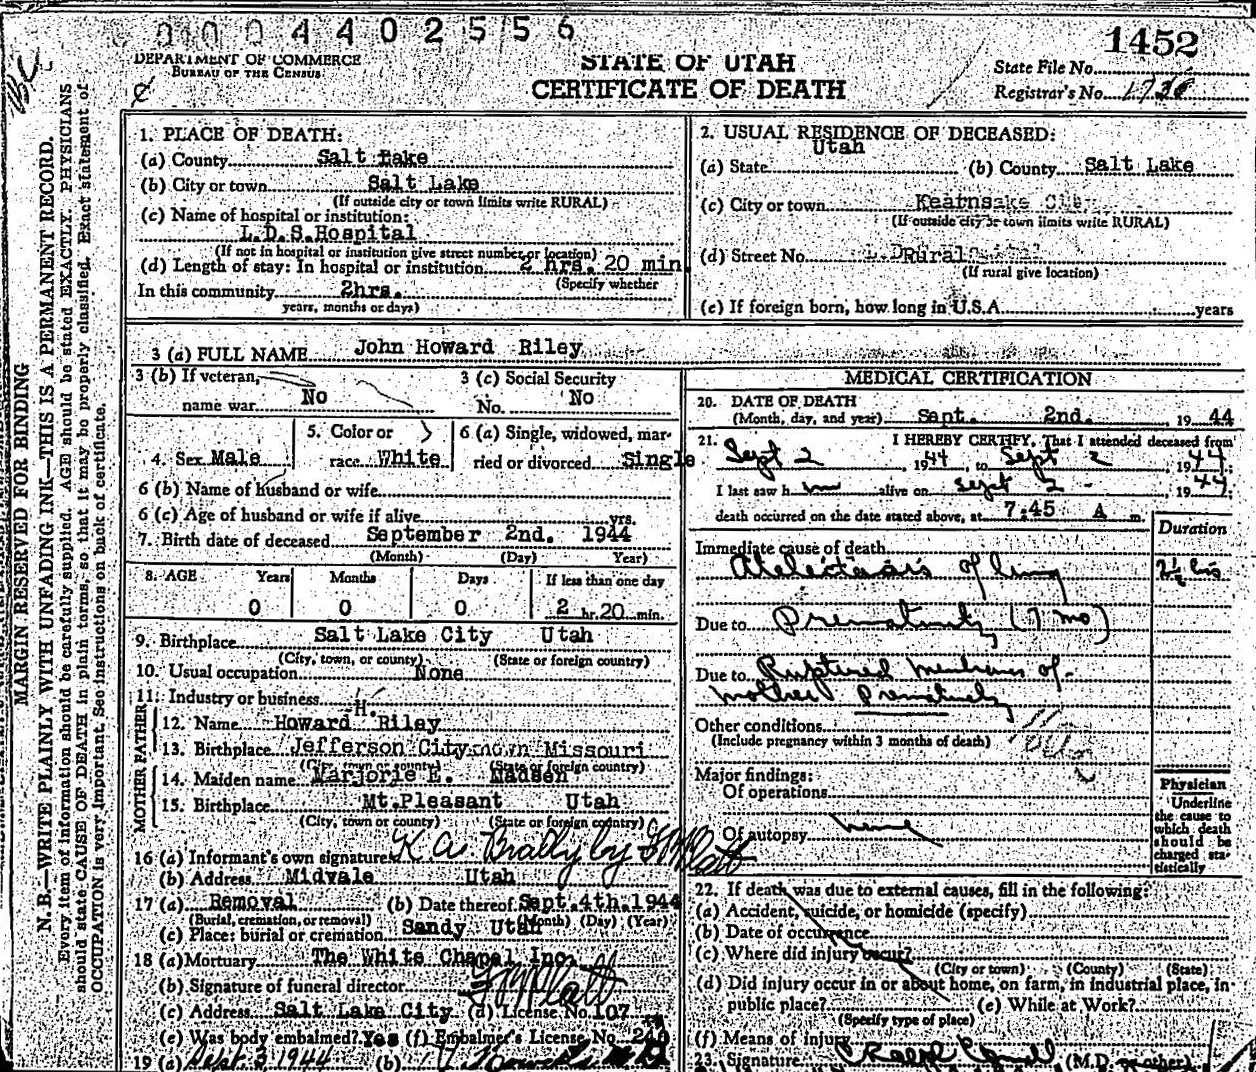 0004402556
1452
DEPARTMENT OF COMMERCE
BUREAU OF THE CENSUS
STATE OF UTAH
CERTIFICATE OF DEATH
State File No.
Registrar's No.
MARGIN RESERVED FOR BINDING
N. B.—WRITE PLAINLY WITH UNFADING INK—THIS IS A PERMANENT RECORD.
Every item of information should be carefully supplied. AGE should be stated EXACTLY. PHYSICIANS
should state CAUSE OF DEATH in plain terms, so that it may be properly classified. Exact statement of
OCCUPATION is very important. See instructions on back of certificate.
1. PLACE OF DEATH:
(a) County Salt Lake
(b) City or town Salt Lake
(If outside city or town limits write RURAL)
(c) Name of hospital or institution:
L.D.S. Hospital
(If not in hospital or institution give street number or location)
(d) Length of stay: In hospital or institution 2 hrs. 20 min.
(Specify whether
In this community 2hrs.
years, months or days)
2. USUAL RESIDENCE OF DECEASED:
(a) State Utah (b) County Salt Lake
(c) City or town Kearns
(If outside city or town limits write RURAL)
(d) Street No. Rural
(If rural give location)
(e) If foreign born, how long in U.S.A. years
3 (a) FULL NAME John Howard Riley
3 (b) If veteran,
name war No
3 (c) Social Security
No. No
4. Sex Male
5. Color or
race White
6 (a) Single, widowed, mar-
ried or divorced Single
6 (b) Name of husband or wife
6 (c) Age of husband or wife if alive yrs.
7. Birth date of deceased September 2nd. 1944
(Month) (Day) Year)
8. AGE Years Months Days If less than one day
0 0 0 2 hr. 20 min.
9. Birthplace Salt Lake City Utah
(City, town, or county) (State or foreign country)
10. Usual occupation None
11. Industry or business
FATHER
12. Name Howard H. Riley
13. Birthplace Jefferson City Missouri
(City, town or county) (State or foreign country)
MOTHER
14. Maiden name Marjorie E. Madsen
15. Birthplace Mt. Pleasant Utah
(City, town or county) (State or foreign country)
16 (a) Informant's own signature K A Bradly by
(b) Address Midvale Utah
17 (a) Removal (b) Date thereof Sept. 4th. 1944
(Burial, cremation, or removal) (Month) (Day) (Year)
(c) Place: burial or cremation Sandy Utah
18 (a) Mortuary The White Chapel Inc.
(b) Signature of funeral director
(c) Address Salt Lake City (d) License No. 107
(e) Was body embalmed? Yes (f) Embalmer's License No.
19 (a) Sept. 3, 1944 (b)
MEDICAL CERTIFICATION
20. DATE OF DEATH
(Month, day, and year) Sept. 2nd. , 19 44
21. I HEREBY CERTIFY, That I attended deceased from
Sept 2 , 19 44 , to Sept 2 , 19 44
I last saw h im alive on Sept 2 , 19 44
death occurred on the date stated above, at 7:45 A m.
Duration
Immediate cause of death
Atelectasis of lung 2½ hrs
Due to Prematurity (7 mo)
Due to Ruptured membranes of
mother Prematurely
Other conditions
(Include pregnancy within 3 months of death)
Major findings:
Of operations
Of autopsy none
Physician
Underline
the cause to
which death
should be
charged sta-
tistically
22. If death was due to external causes, fill in the following:
(a) Accident, suicide, or homicide (specify)
(b) Date of occurrence
(c) Where did injury occur?
(City or town) (County) (State)
(d) Did injury occur in or about home, on farm, in industrial place, in
public place? (e) While at Work?
(Specify type of place)
(f) Means of injury
23. Signature (M.D. or other)